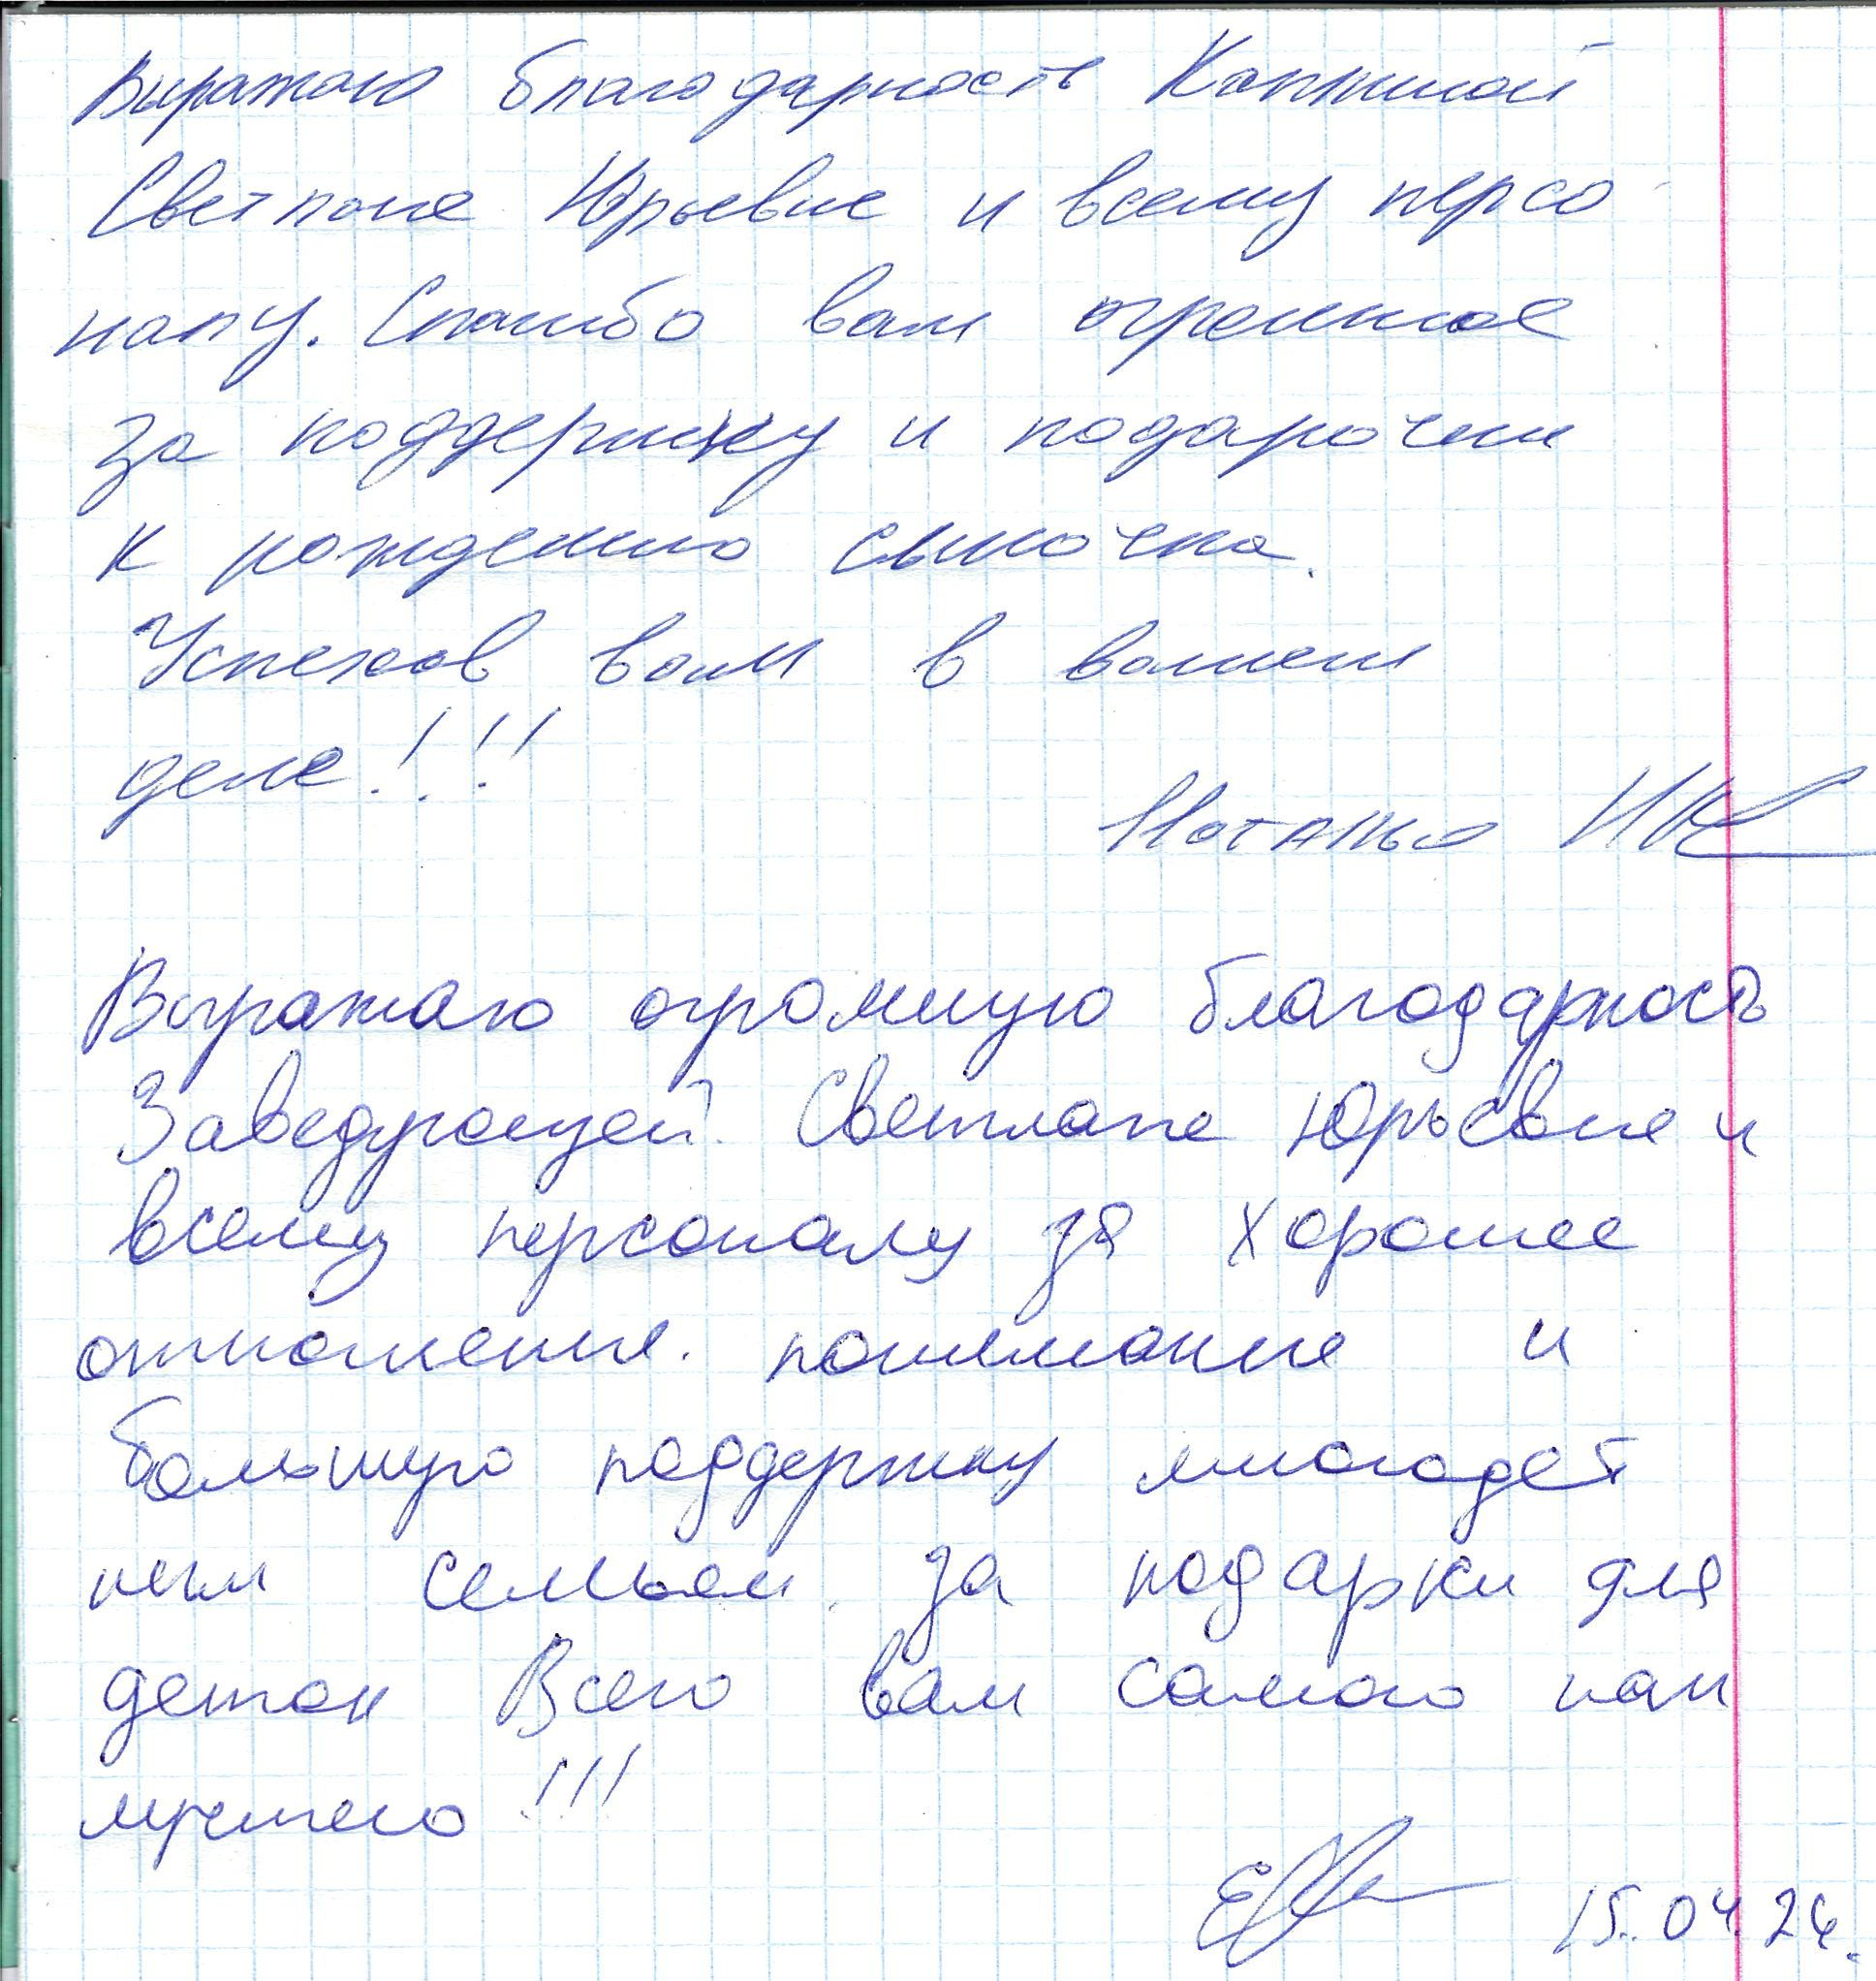 Выражаю благодарность
Светлане Юрьевне и всему персо
налу. Спасибо вам огромное
за поддержку и подарочки
к рождению сыночка.
Успехов вам в вашем
деле!!!
Наталья
Выражаю огромную благодарность
Заведующей Светлане Юрьевне и
всему персоналу за хорошее
отношение. понимание и
большую поддержку многодет
ным семьям за подарки для
деток Всего вам самого наи
лучшего!!!
15.04.24.